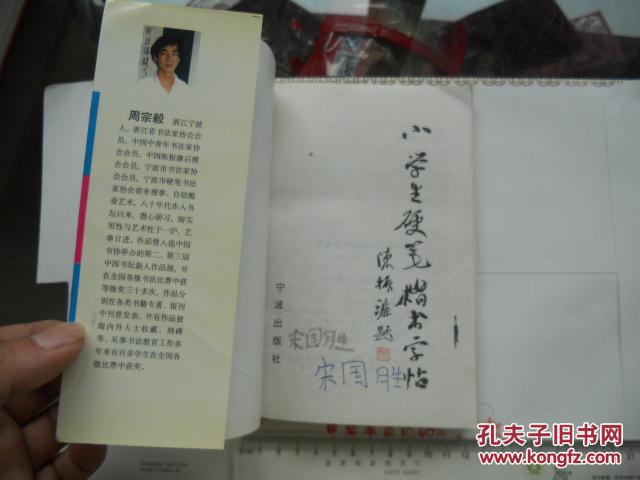 周宗毅 浙江宁波
人。浙江省书法家协会会
员，中国中青年书法家协
会会员，中国陈振濂后援
会会员，宁波市书法家协
会会员，宁波市硬笔书法
家协会常务理事。自幼酷
爱艺术，八十年代步入书
坛以来，潜心研习，熔实
用性与艺术性于一炉，艺
事日进。作品曾入选中国
书协举办的第二、第三届
中国书坛新人作品展，并
在全国各级书法比赛中获
等级奖三十多次，作品分
别在各类书籍专著、报刊
中刊登发表，并有作品被
海内外人士收藏、刻碑
等。从事书法教育工作多
年来有许多学生在全国各
级比赛中获奖。
小学生硬笔楷书字帖
陈振濂题
宁波出版社
宋国胜
宋国胜
孔夫子旧书网
www.kongfz.com